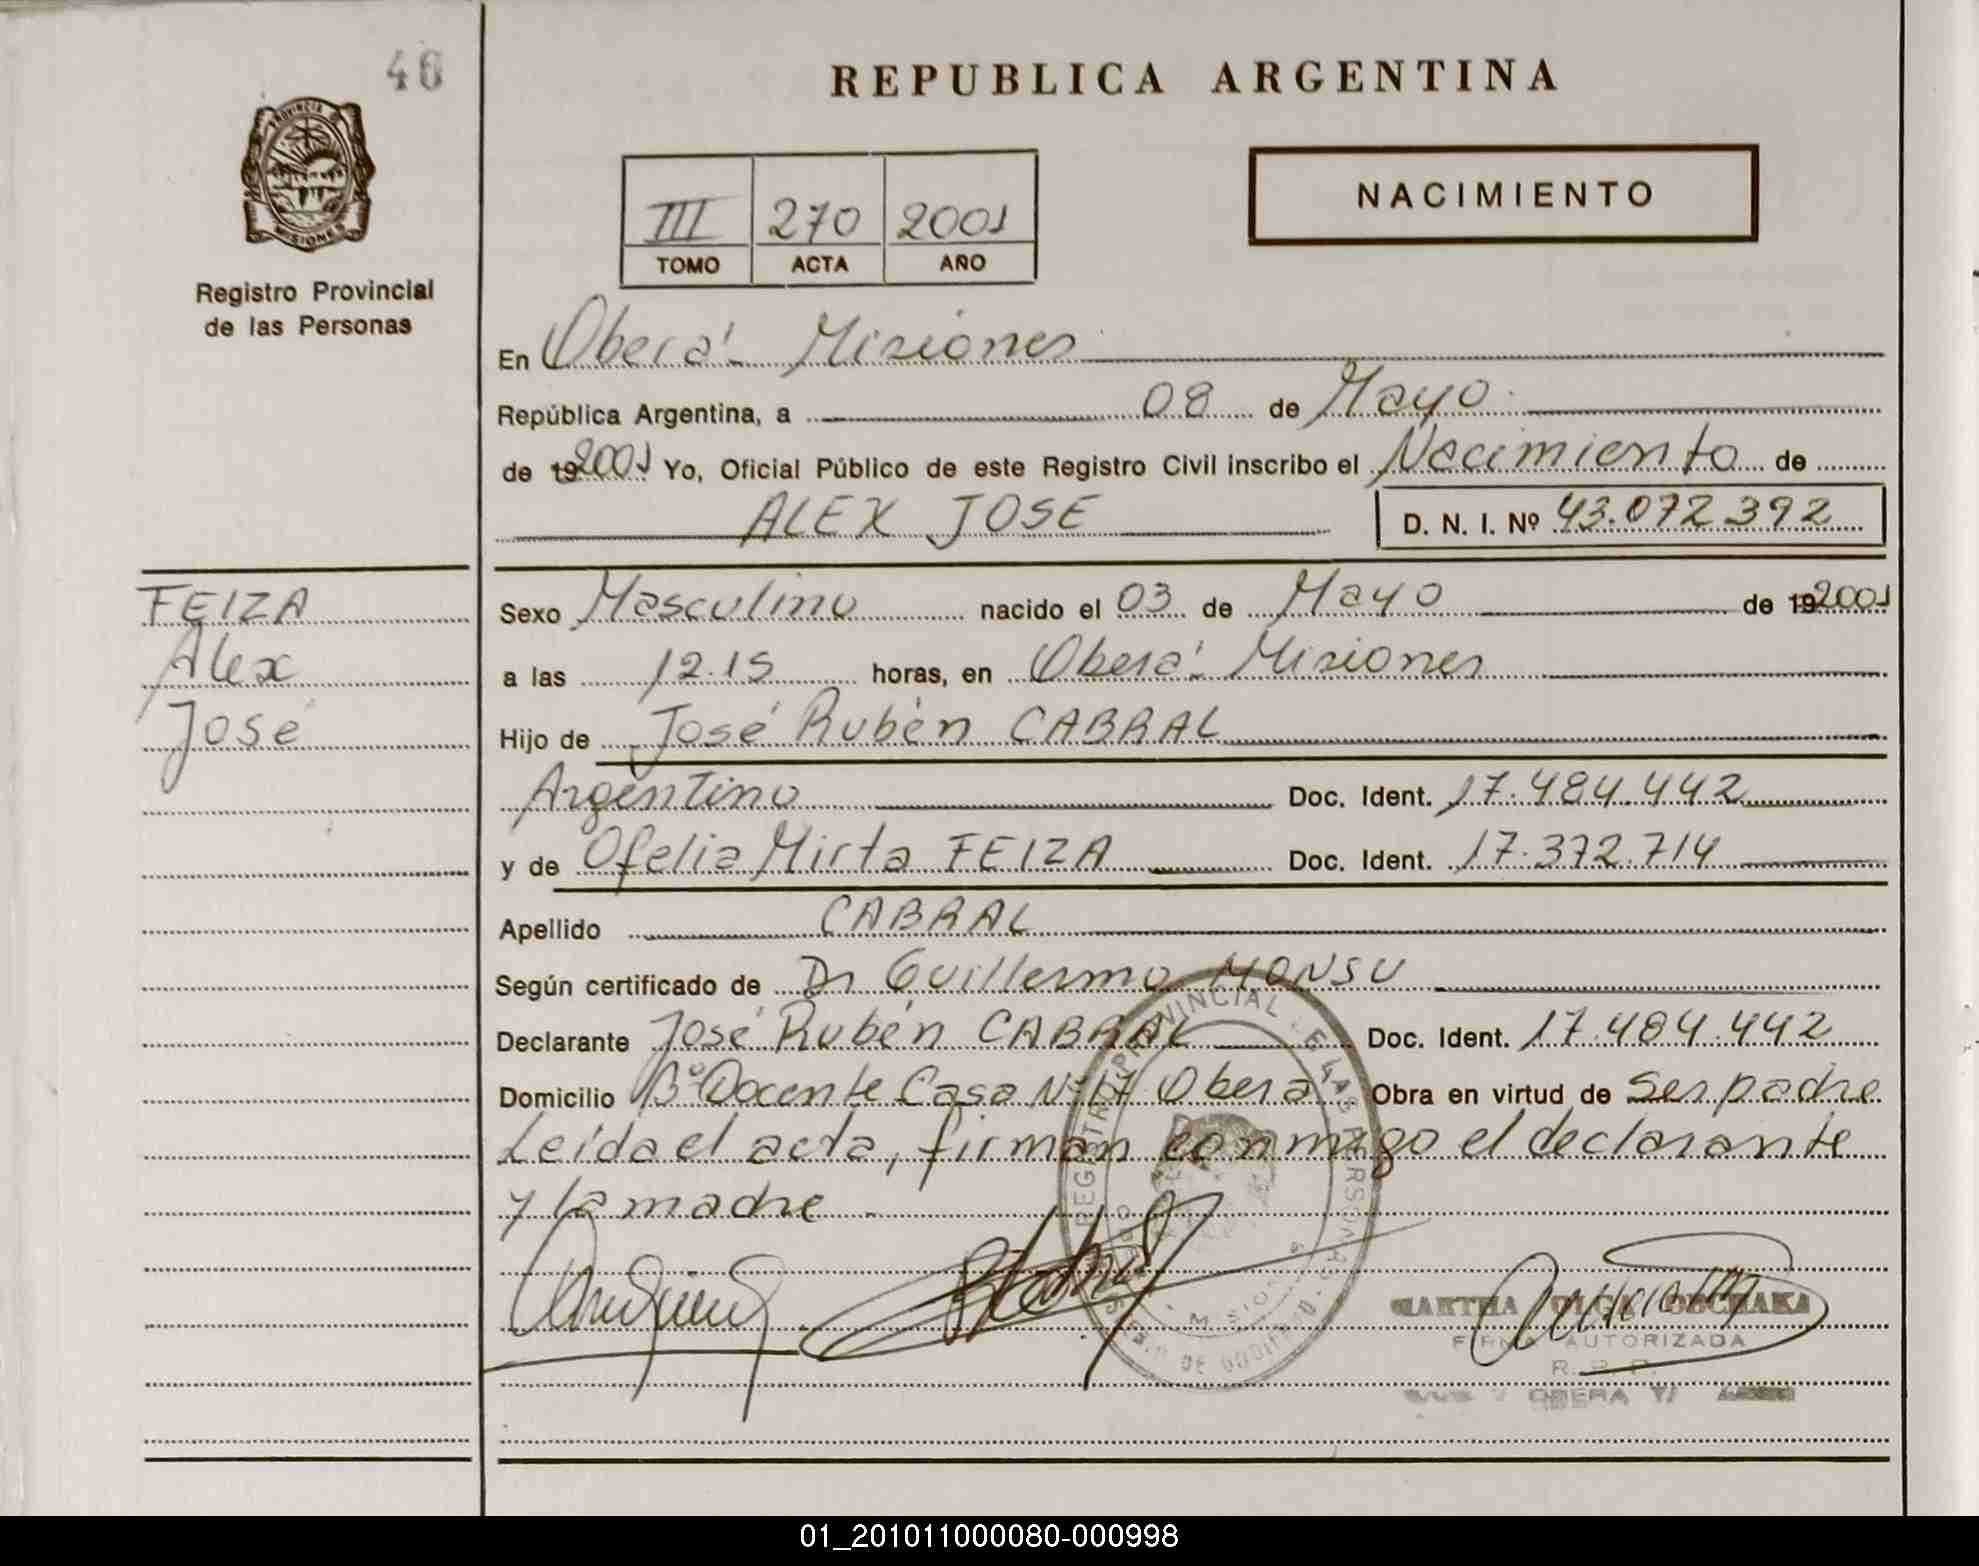 46
PROVINCIA
MISIONES
Registro Provincial
de las Personas
REPUBLICA ARGENTINA
NACIMIENTO
III 270 2001
TOMO ACTA AÑO
En Oberá - Misiones
República Argentina, a 08 de Mayo
de 19 2001 Yo, Oficial Público de este Registro Civil inscribo el Nacimiento de
ALEX JOSE D. N. I. Nº 43.072.392
FEIZA
Alex
José
Sexo Masculino nacido el 03 de Mayo de 19 2001
a las 12.15 horas, en Oberá - Misiones
Hijo de José Rubén CABRAL
Argentino Doc. Ident. 17.484.442
y de Ofelia Mirta FEIZA Doc. Ident. 17.372.714
Apellido CABRAL
Según certificado de Dr Guillermo MONSU
Declarante José Rubén CABRAL Doc. Ident. 17.484.442
Domicilio Bº Docente Casa Nº 17 Oberá Obra en virtud de ser padre
Leída el acta, firman conmigo el declarante
y la madre -
REGISTRO PROVINCIAL DE LAS PERSONAS
MARTHA OLGA
FIRMA AUTORIZADA
R. P. P.
OBERA
01_201011000080-000998